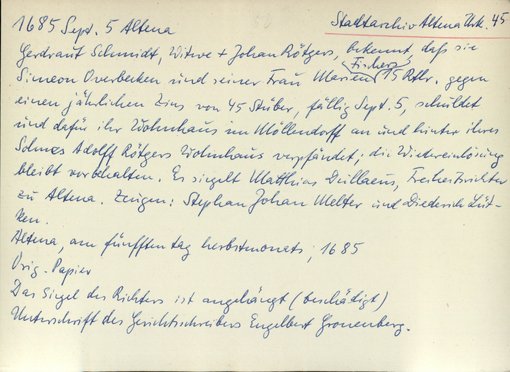 1685 Sept. 5 Altena
Stadtarchiv Altena Urk. 45
Gerdraut Schmidt, Witwe + Johan Rötgers, bekennt, daß sie
Simeon Overbecken und seiner Frau Marien Fischers 15 Rtlr. gegen
einen jährlichen Zins von 45 Stüber, fällig Sept. 5, schuldet
und dafür ihr Wohnhaus im Möllendorff an und hinter ihres
Sohnes Adolff Rötgers Wohnhaus verpfändet; die Wiedereinlösung
bleibt vorbehalten. Es siegelt Matthias Dullaeus, Freiheitsrichter
zu Altena. Zeugen: Stephan Johan Melter und Diederich Lüt-
ken.
Altena, am fünfften tag herbstmonats, 1685
Orig. Papier
Das Siegel des Richters ist angehängt (beschädigt)
Unterschrift des Gerichtschreibers Engelbert Gronenberg.